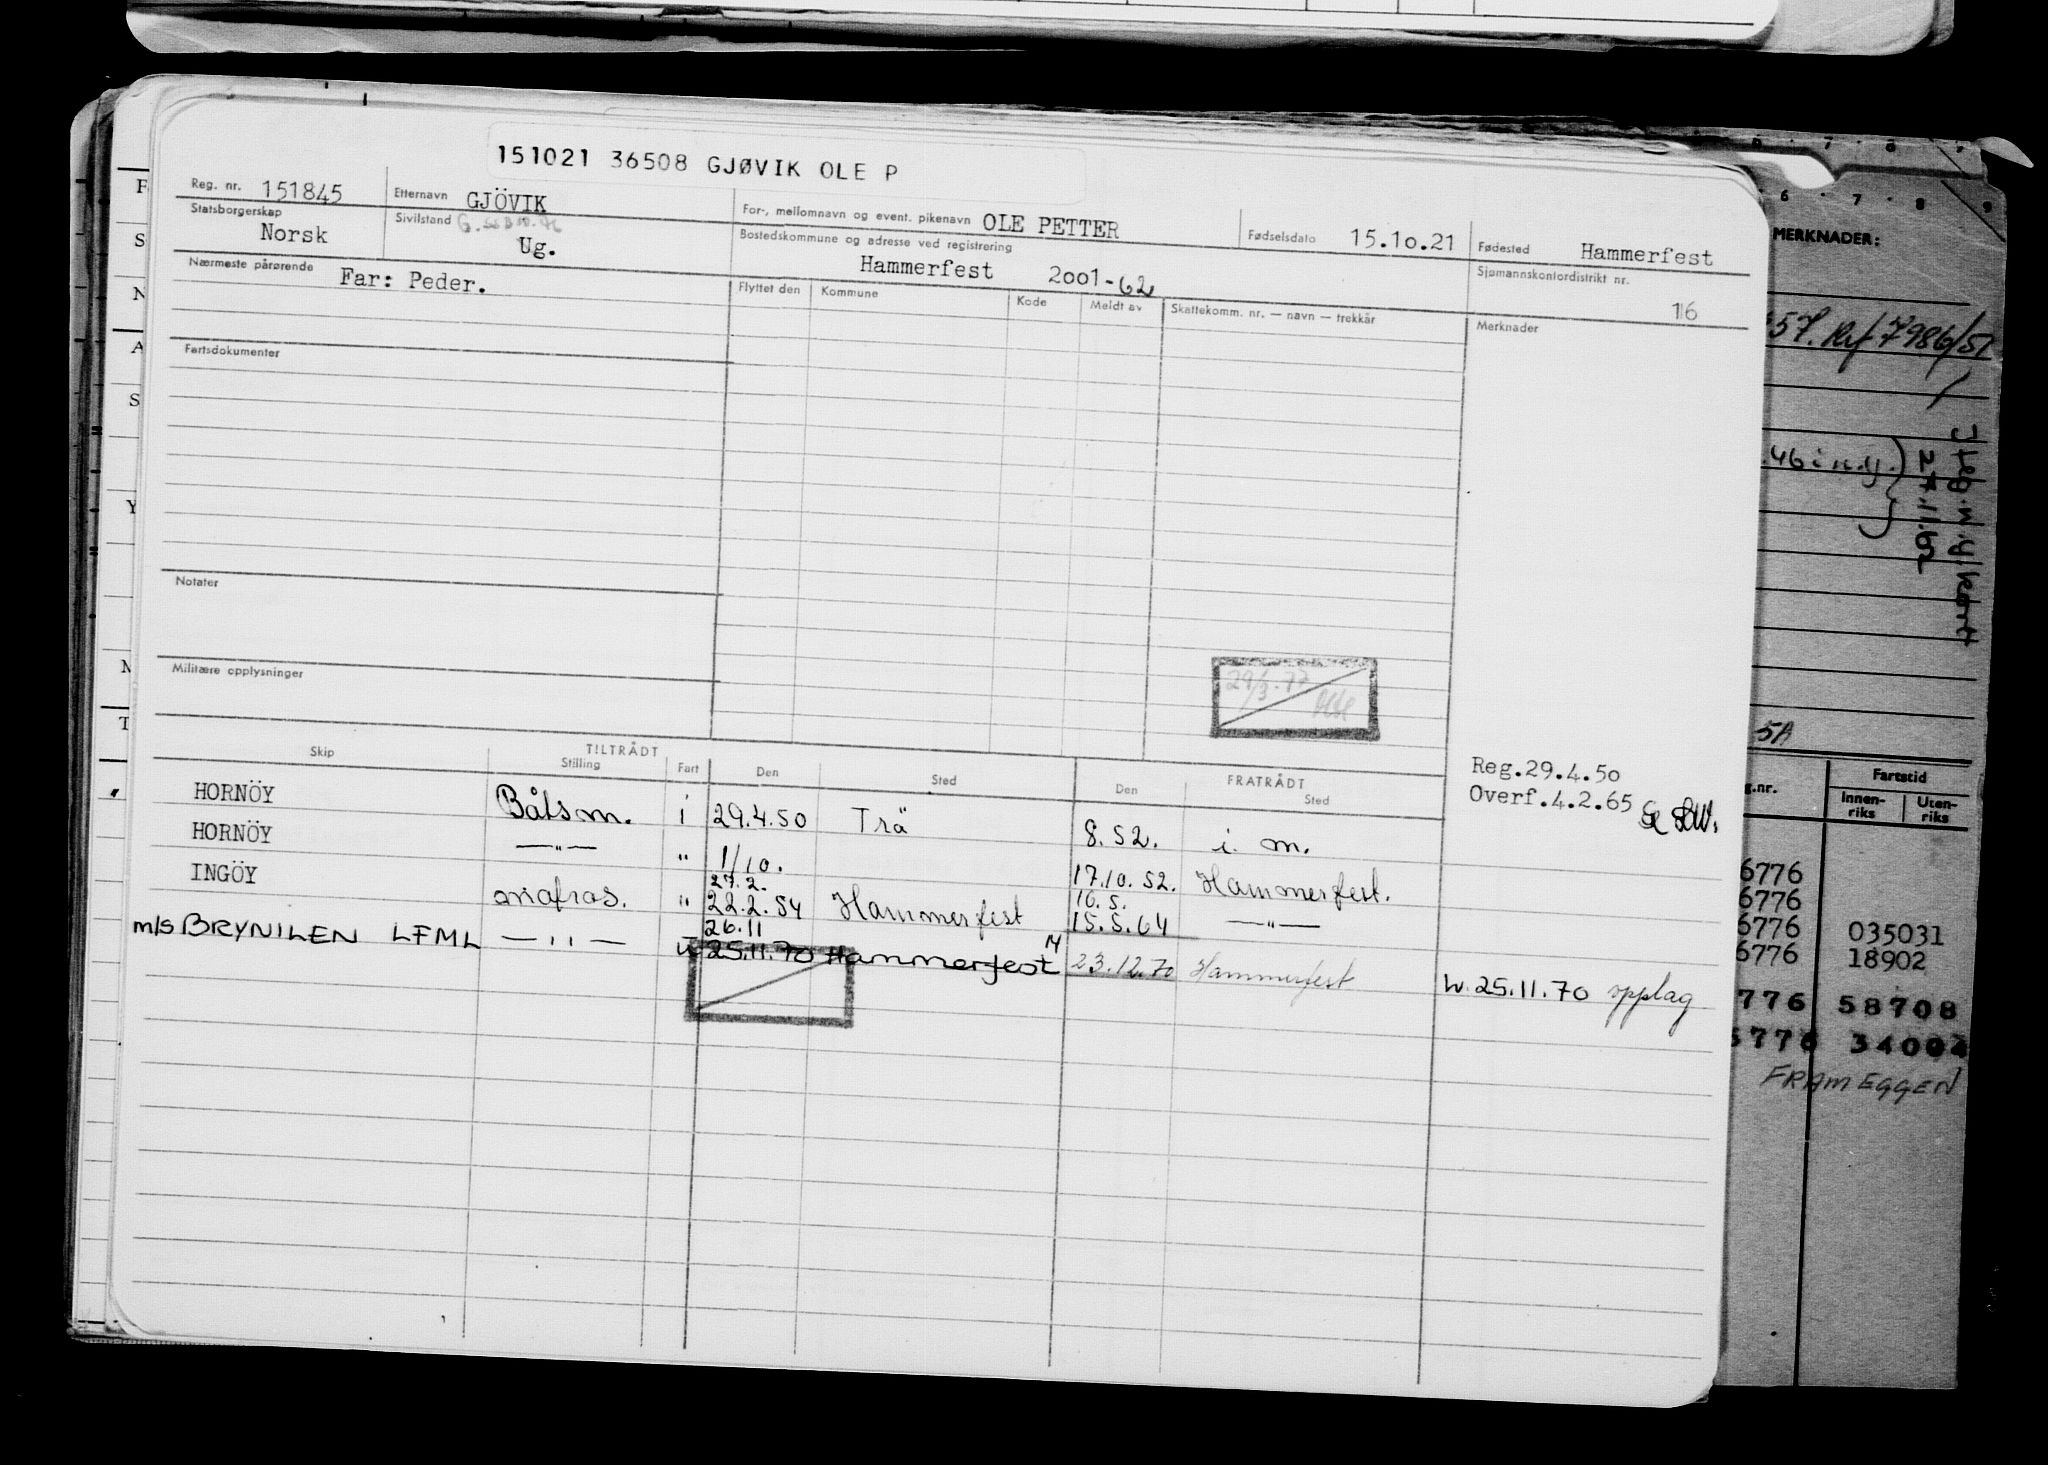 151021 36508 GJØVIK OLE P
Reg. nr. 151845 Etternavn GJÖVIK For-, mellomnavn og event. pikenavn OLE PETTER Fødselsdato 15.10.21 Fødested Hammerfest
Statsborgerskap Norsk Sivilstand Ug. Bostedskommune og adresse ved registrering Hammerfest 2001-62 Sjømannskontordistrikt nr. 16
Nærmeste pårørende Far: Peder. Flyttet den Kommune Kode Meldt av Skattekomm. nr. — navn — trekkår Merknader
Fartsdokumenter
Notater
Militære opplysninger
29/3.77
Reg.29.4.50
Overf.4.2.65
TILTRÅDT FRATRÅDT
Skip Stilling Fart Den Sted Den Sted
HORNÖY Båtsm. i 29.4.50 Trä 8.52. i. m.
HORNÖY —"— " 1/10. 17.10.52. Hammerfest.
27.2. 16.5.
INGÖY matros. " 22.2.54 Hammerfest 15.5.64 —"—
26.11
m/s BRYNILEN LFML —"— u 25.11.70 Hammerfest M 23.12.70 Hammerfest W. 25.11.70 opplag
MERKNADER:
57. Ref 7986/51
.46 i n.y.)
27.11.62
5A
g.nr. Fartstid
Innen-riks Uten-riks
6776
6776
6776 035031
6776 18902
776 58708
6776 34004
FRAM EGGEN
F
S
N
A
S
Y
M
T
6 7 8 9